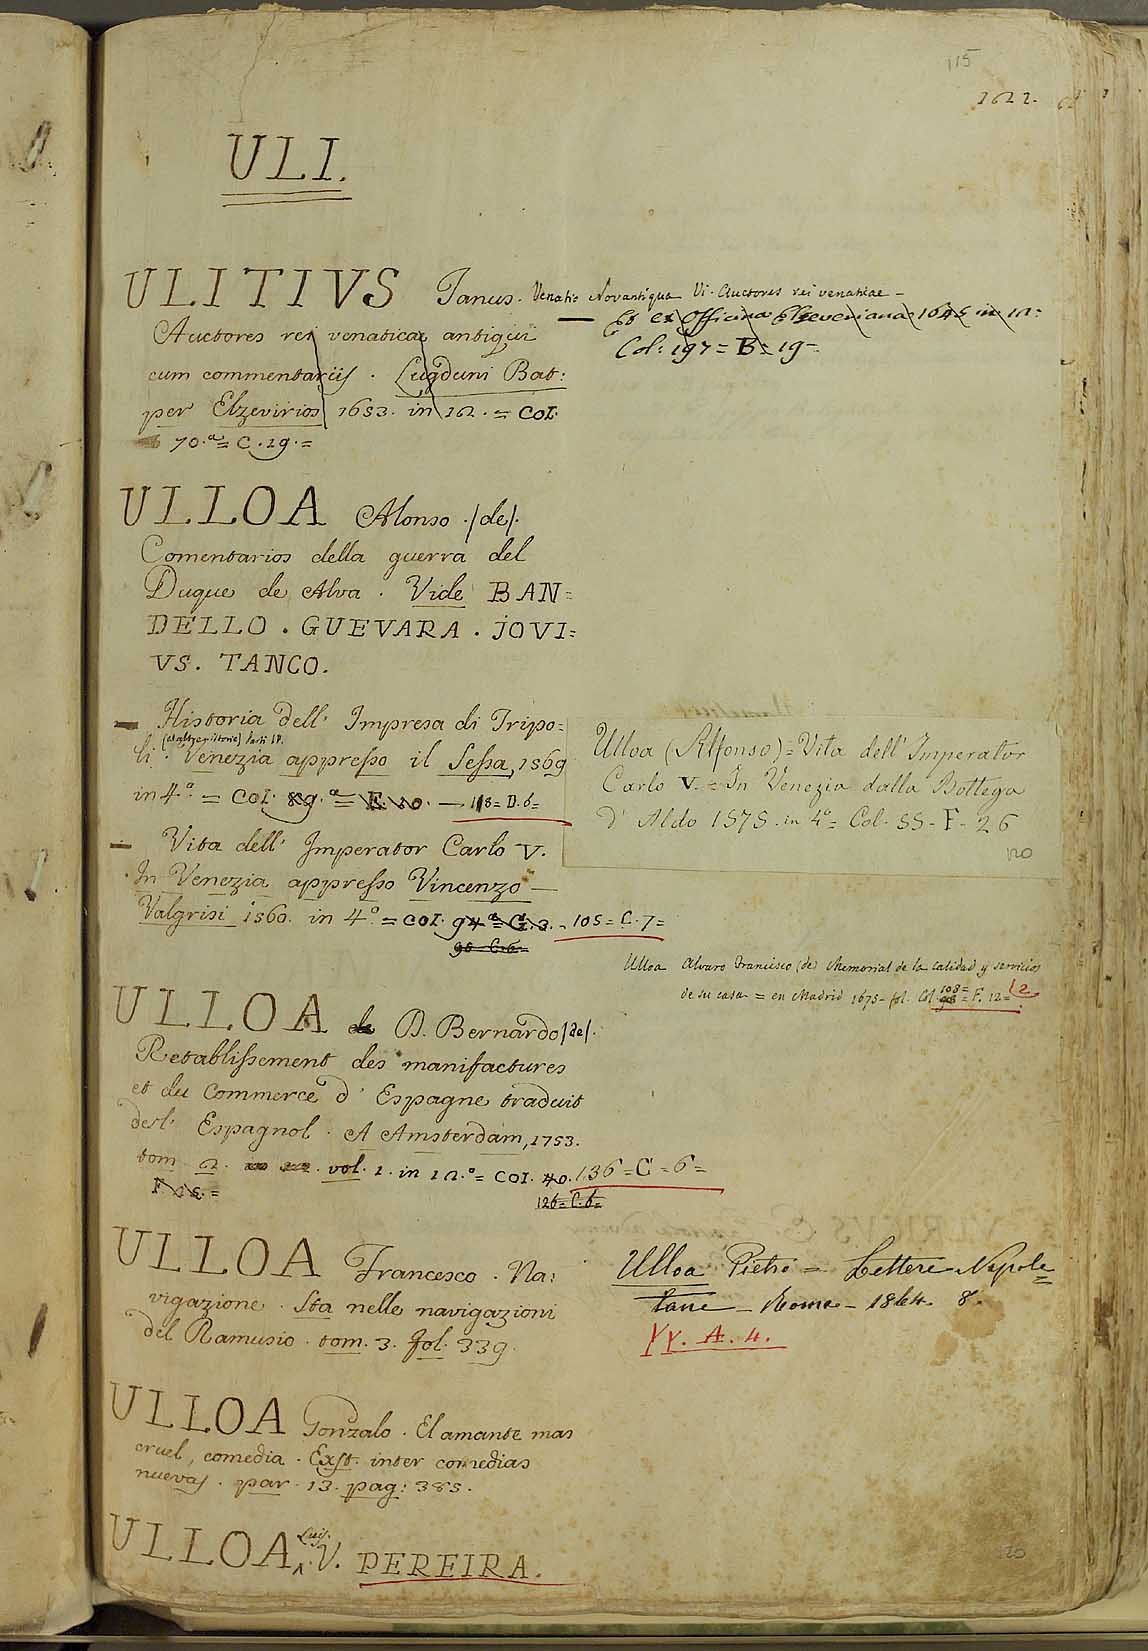 115
1622.
ULI.
ULITIVS Janus. Venatio Novantiqua Vi. Auctores rei venaticae -
Auctores rei venaticae antiqui
cum commentariis. Lugduni Bat:
per Elzevirios 1653. in 12. = COL.
70.a = C. 19. =
— Et ex Officina Elzeveriana 1645 in 12:
Col: 197 = B = 19 =
ULLOA Alonso /de/.
Comentarios della guerra del
Duque de Alva. Vide BAN=
DELLO. GUEVARA. JOVI=
VS. TANCO.
— Historia dell' Impresa di Tripo=
li. Venezia appresso il Sessa, 1569
in 4.o = COL. 89.a = F. 20. — 118 = D. 6 =
— Vita dell' Imperator Carlo V.
In Venezia appresso Vincenzo —
Valgrisi 1560. in 4.o = COL. 94.a = G. 3. - 105 = C. 7 =
98 = C. 6 =
Ulloa (Alfonso) = Vita dell' Imperator
Carlo V. = In Venezia dalla Bottega
d' Aldo 1575. in 4o = Col. 55 - F - 26
120
Ulloa Alvaro Francisco (de) Memorial de la calidad y servicios
de su casa = en Madrid 1675 - fol. Col. 108 = F. 12 = 12
ULLOA D. Bernardo /de/.
Retablissement des manifactures
et du Commerce d' Espagne traduit
del' Espagnol. A Amsterdam, 1753.
tom. 2. vol. 1. in 12.o = COL. 40. 136 = C = 6 =
126 = C. 6 =
ULLOA Francesco. Na=
vigazione. Sta nelle navigazioni
del Ramusio. tom. 3. fol. 339.
Ulloa Pietro = Lettere Napole
=
tane — Roma — 1864. 8.
YY. A. 4.
ULLOA Gonzalo. El amante mas
cruel, comedia. Exst. inter comedias
nuevas. par. 13. pag: 385.
ULLOA Luis. V. PEREIRA.
120